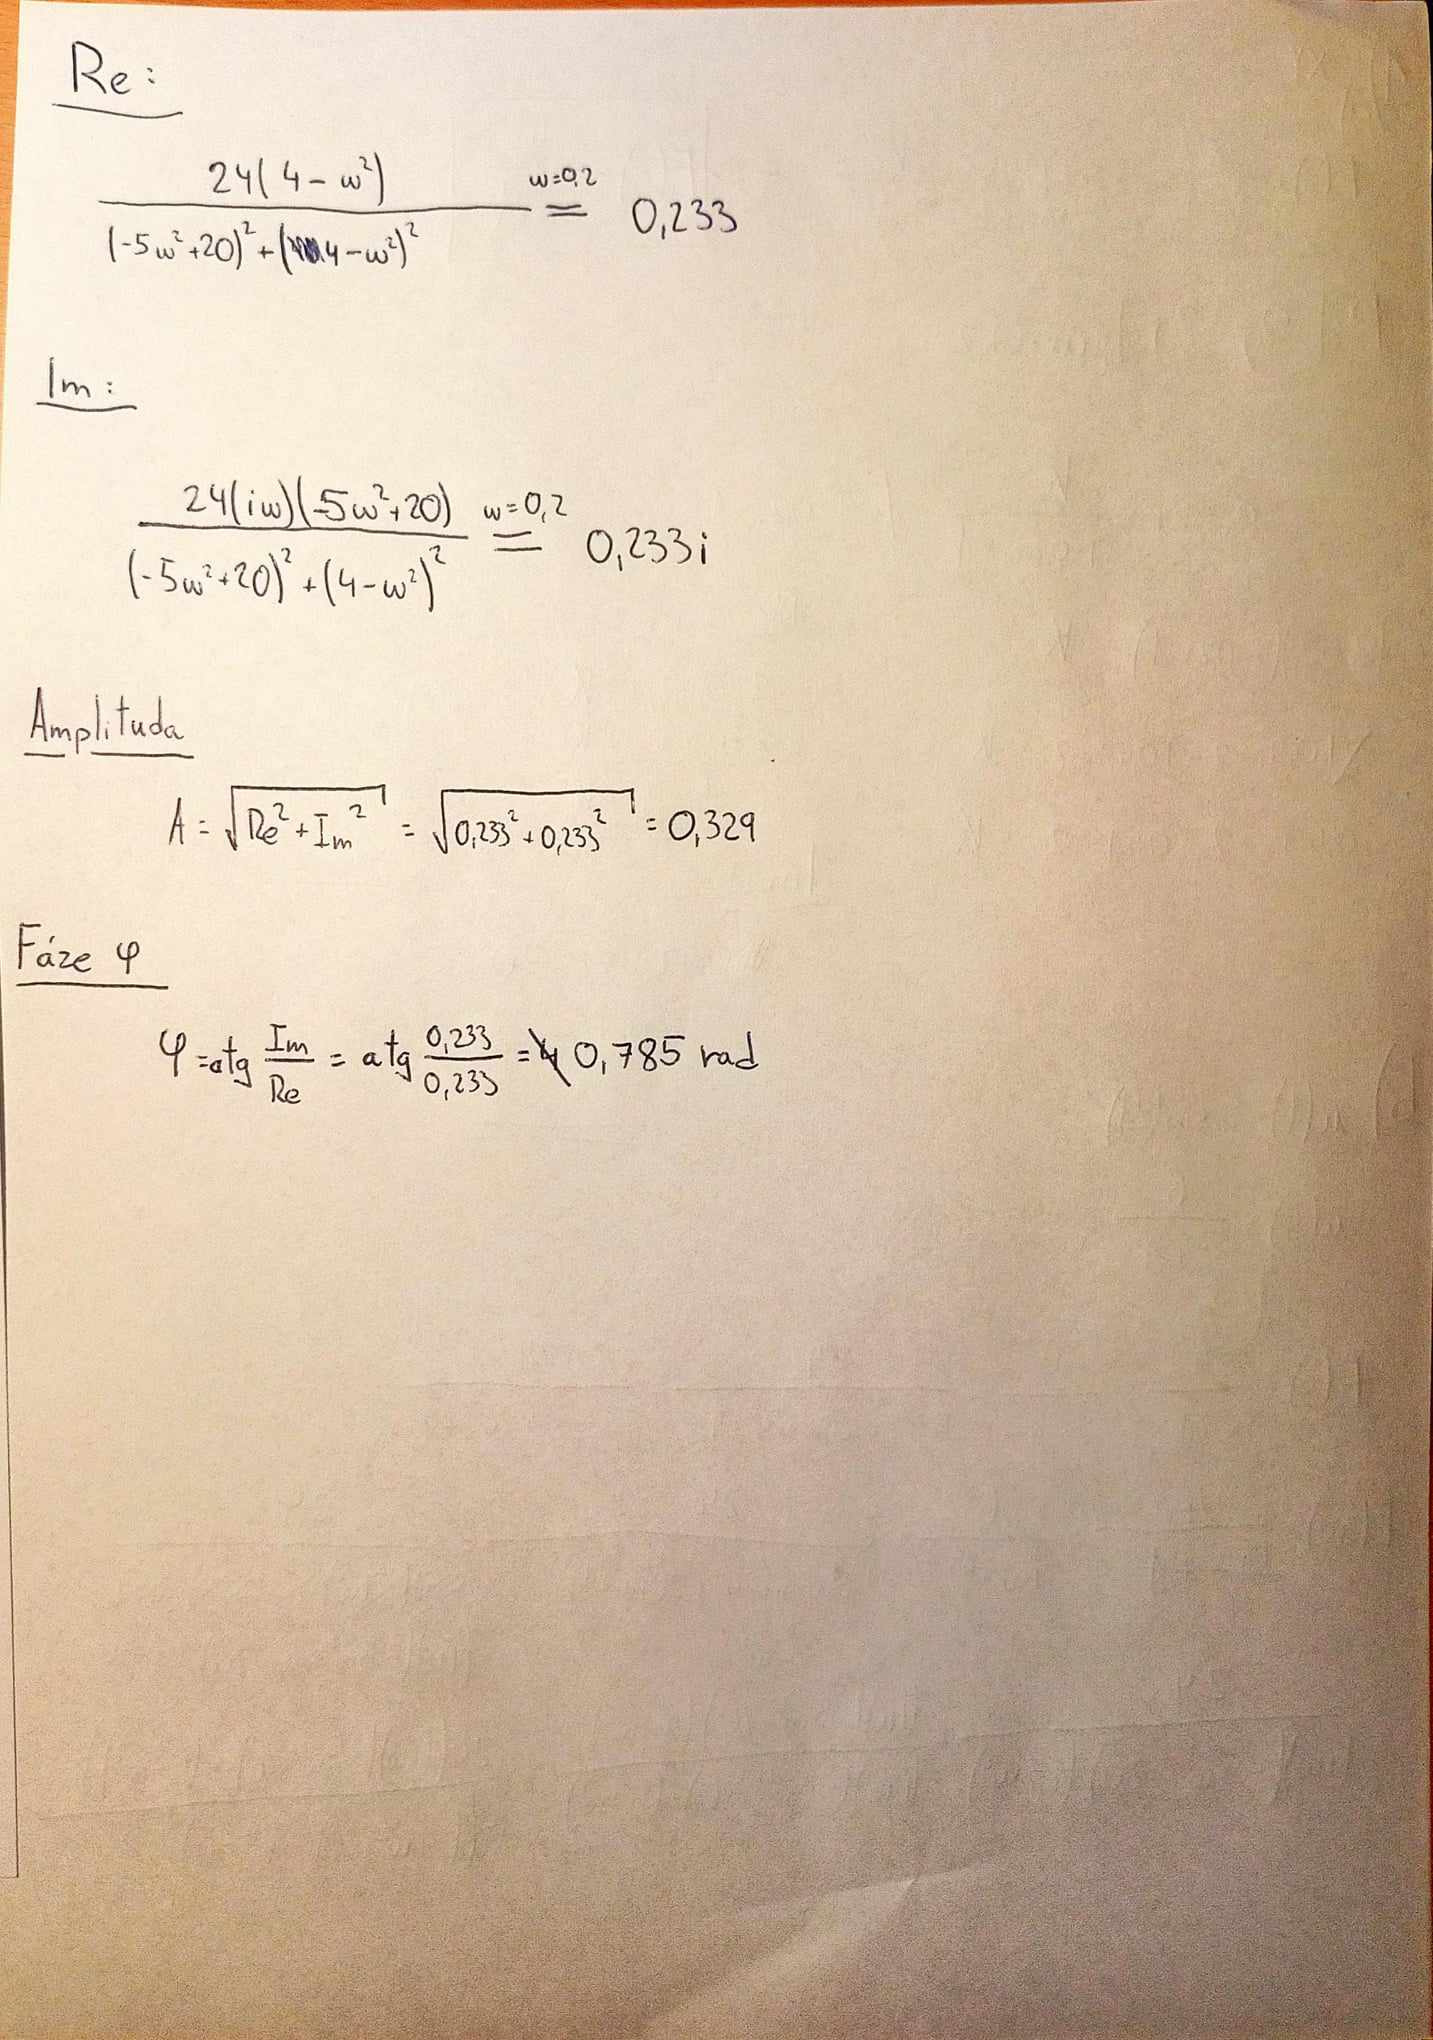 Re:
24(4-ω²)
(-5ω²+20)²+(4-ω²)² ω=0,2 = 0,233
Im:
24(iω)(-5ω²+20)
(-5ω²+20)²+(4-ω²)² ω=0,2 = 0,233i
Amplituda
A = √Re²+Im² = √0,233²+0,233² = 0,329
Fáze φ
φ=atg Im/Re = atg 0,233/0,233 = 0,785 rad